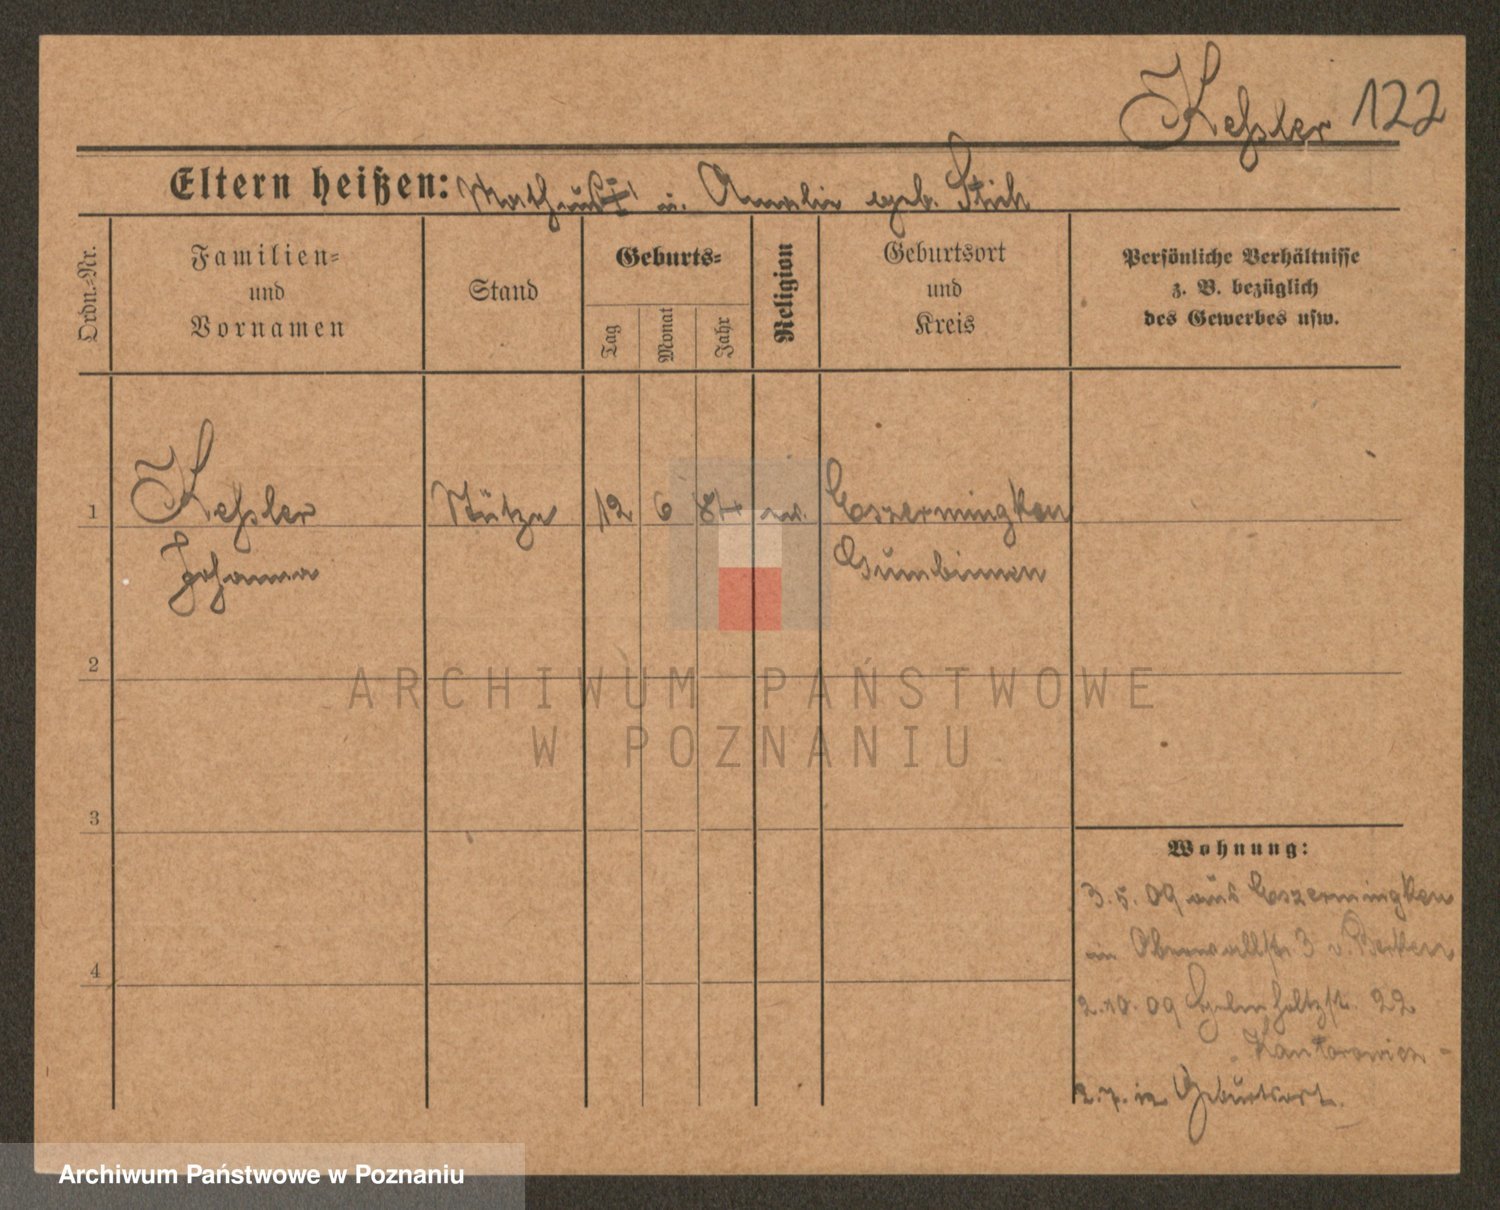 Keßler 122
Eltern heißen: u. Amalie geb. Stich
Ordn.=Nr.
Familien=
und
Vornamen
Stand
Geburts=
Tag
Monat
Jahr
Religion
Geburtsort
und
Kreis
Persönliche Verhältnisse
z. B. bezüglich
des Gewerbes usw.
1 Keßler Stütze 12 6 84 ev. Eszerningken
Johanna Gumbinnen
2
3
4
Wohnung:
3.5.09 aus Eszerningken
in Oberwallstr. 3
2.10.09 22
- Kantorowicz -
2.7. Geburtsort.
ARCHIWUM PAŃSTWOWE
W POZNANIU
Archiwum Państwowe w Poznaniu